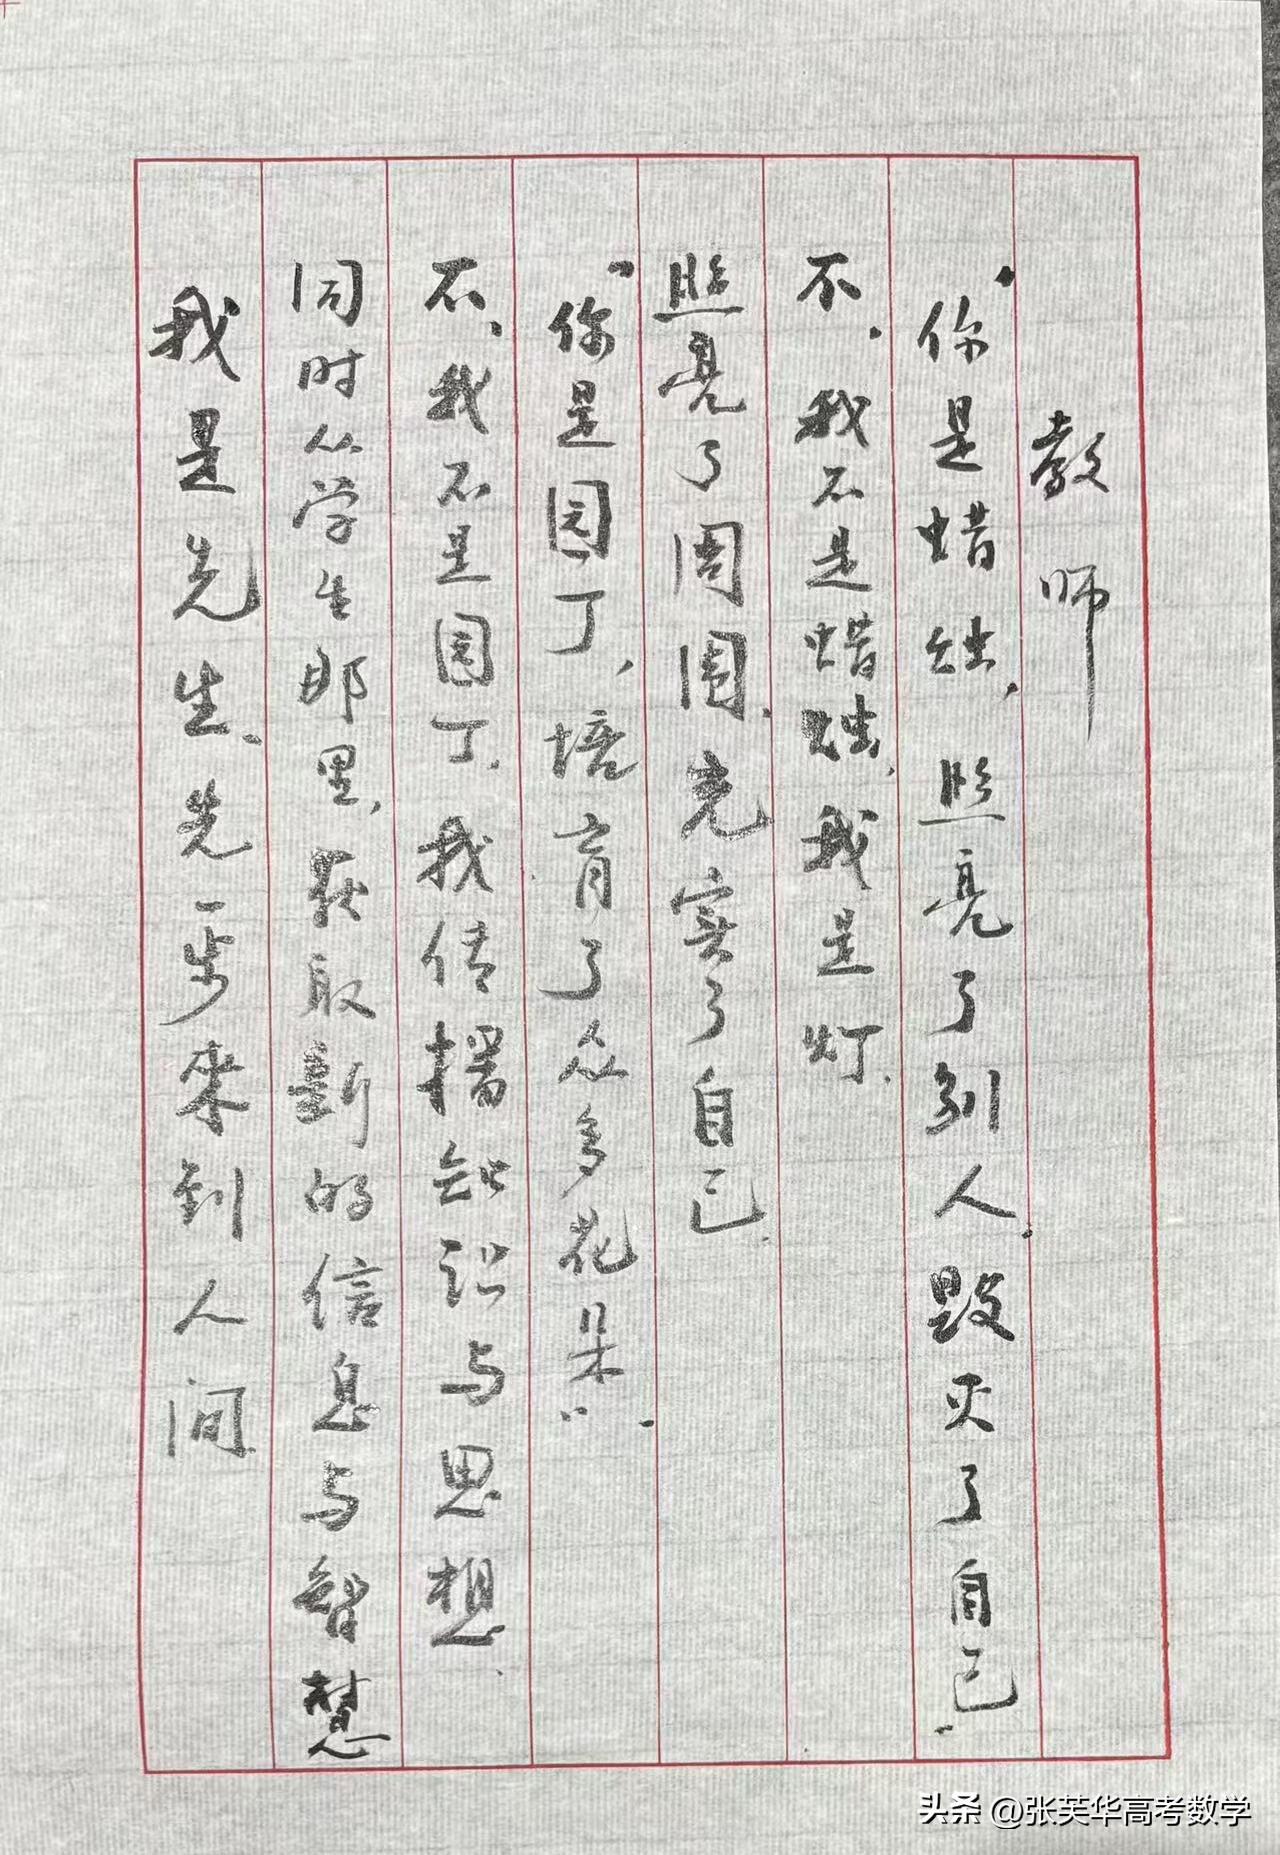 教师
“你是蜡烛，照亮了别人，毁灭了自己”
不，我不是蜡烛，我是灯，
照亮了周围，充实了自己，
“你是园丁，培育了众多花朵”。
不，我不是园丁，我传播知识与思想，
同时从学生那里，获取新的信息与智慧
我是先生、先一步来到人间
头条 @张芙华高考数学